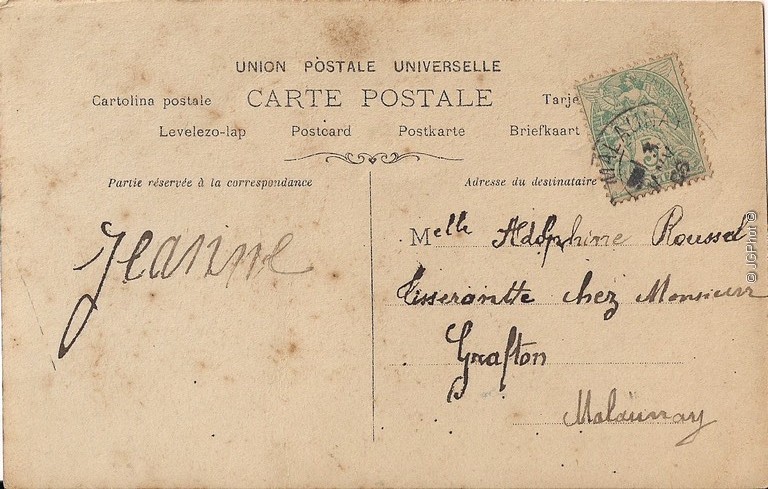 UNION POSTALE UNIVERSELLE
Cartolina postale CARTE POSTALE Tarje
Levelezo-lap Postcard Postkarte Briefkaart
Partie réservée à la correspondance
Adresse du destinataire
Jeanne
Melle Adolphine Roussel
Tisserantte chez Monsieur
Grafton
Malaunay
MALAUNAY
5
© JGPhot ©